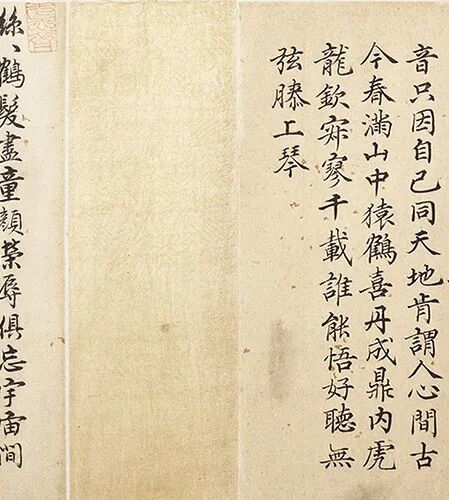 音只因自己同天地肯謂人心間古
今春滿山中猿鶴喜丹成鼎內虎
龍欽寂寥千載誰能悟好聽無
弦膝上琴
絲、鶴髮盡童顏榮辱俱忘宇宙間